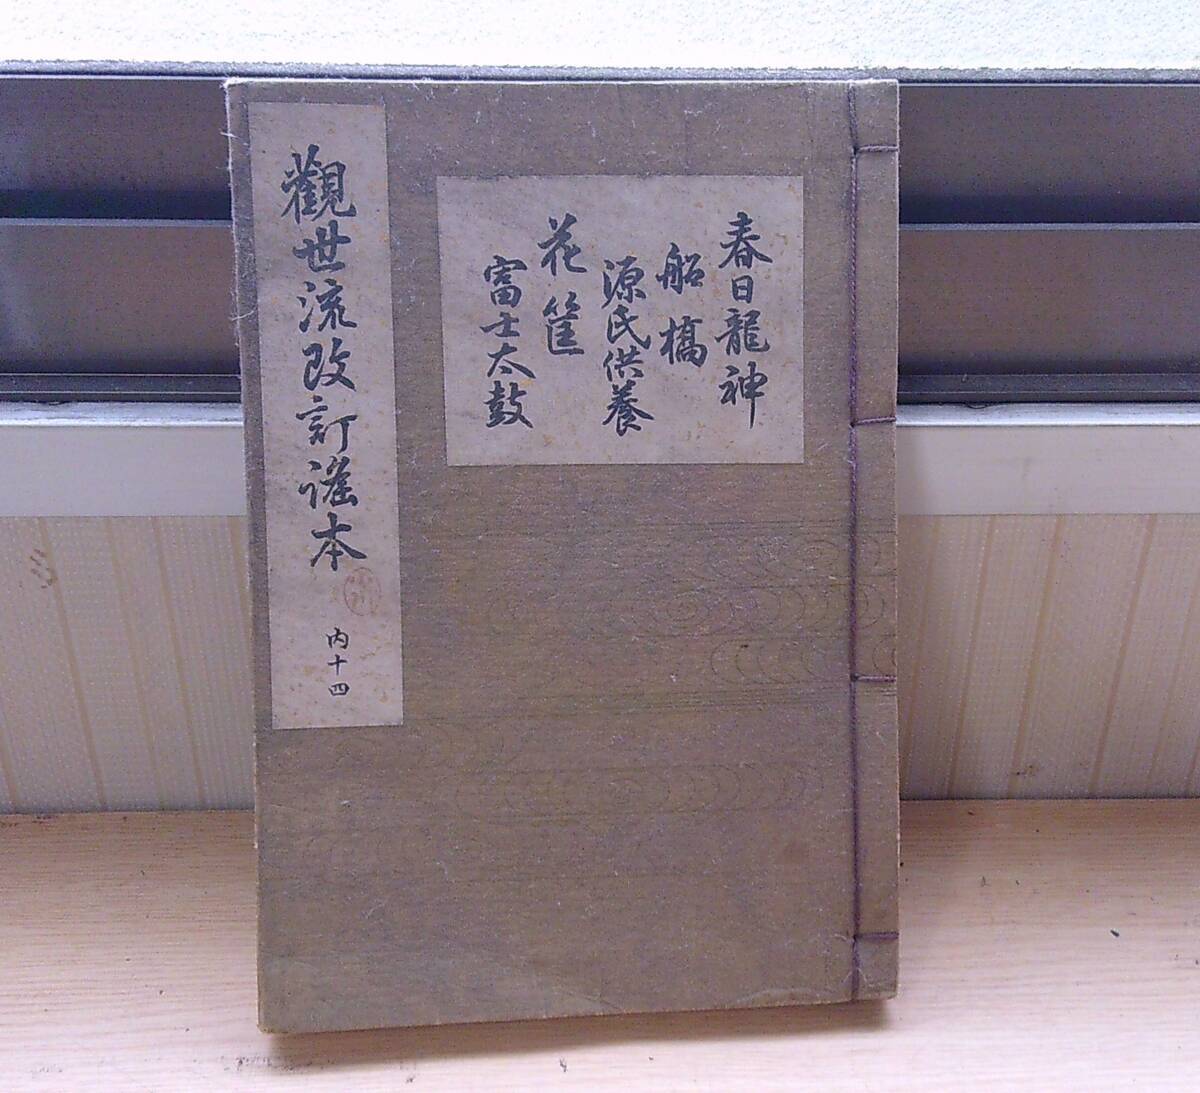 春日龍神
船橋
源氏供養
花筐
富士太鼓
觀世流改訂謠本
内十四